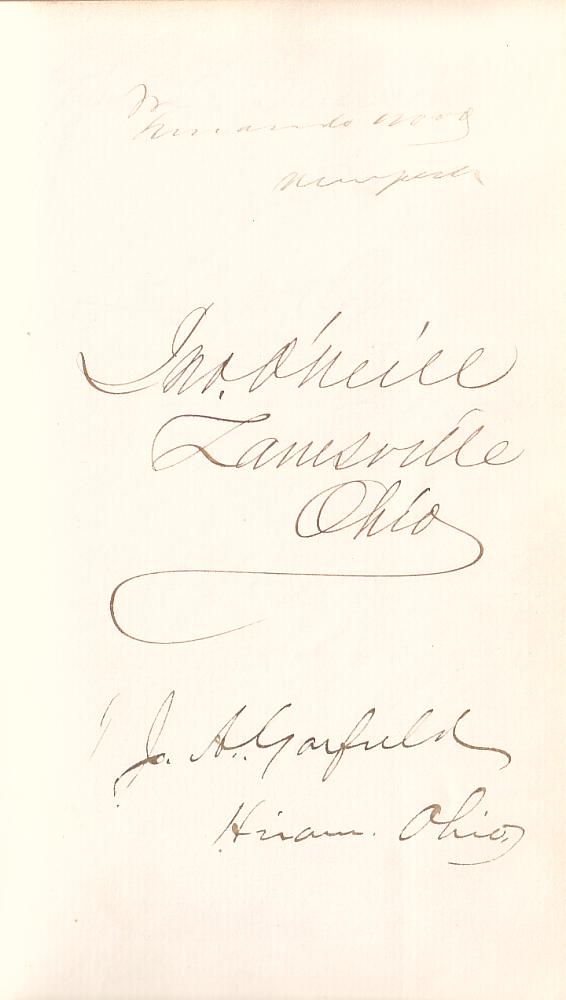 Fernando Wood
New York
Jno. O'Neill
Zanesville
Ohio
J. A. Garfield
Hiram. Ohio.